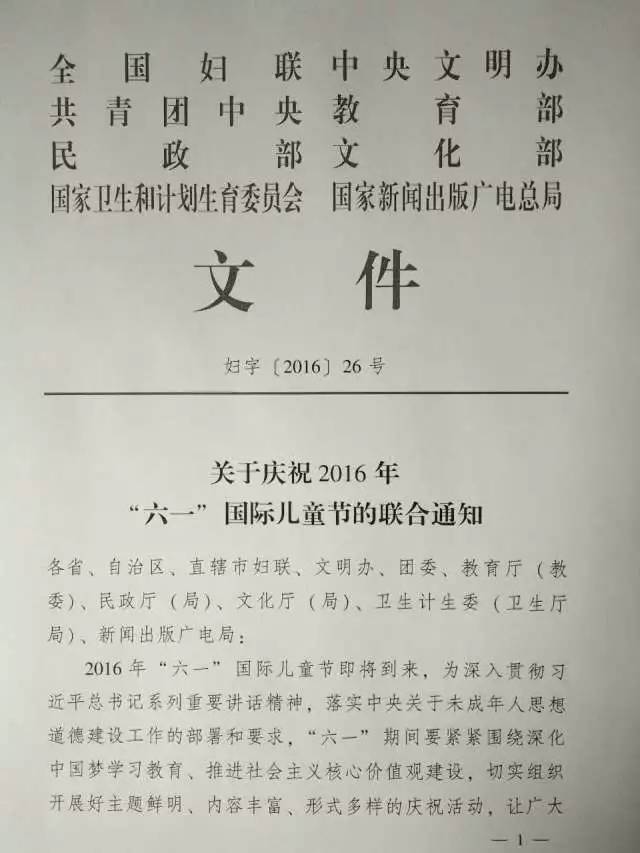 全国妇联 中央文明办
共青团中央 教育部
民政部 文化部
国家卫生和计划生育委员会 国家新闻出版广电总局
文件
妇字〔2016〕26号
关于庆祝2016年
“六一”国际儿童节的联合通知
各省、自治区、直辖市妇联、文明办、团委、教育厅（教
委）、民政厅（局）、文化厅（局）、卫生计生委（卫生厅
局）、新闻出版广电局：
2016年“六一”国际儿童节即将到来，为深入贯彻习
近平总书记系列重要讲话精神，落实中央关于未成年人思想
道德建设工作的部署和要求，“六一”期间要紧紧围绕深化
中国梦学习教育、推进社会主义核心价值观建设，切实组织
开展好主题鲜明、内容丰富、形式多样的庆祝活动，让广大
— 1 —